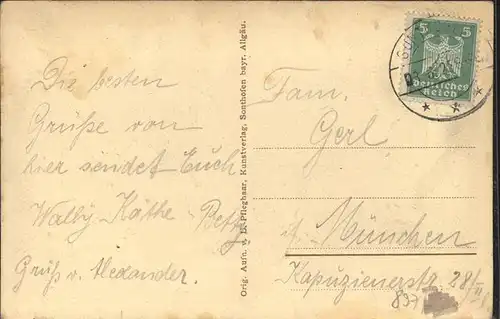 Die besten
Grüße von
hier sendet Euch
Wally Käthe - Betty
Grüß v. Alexander.
Orig. Aufn. v. L. Pfleghaar, Kunstverlag, Sonthofen bayr. Allgäu.
5 5
Deutsches
Reich
Fam.
Gerl
München
Kapuzienerstr. 28/II
837